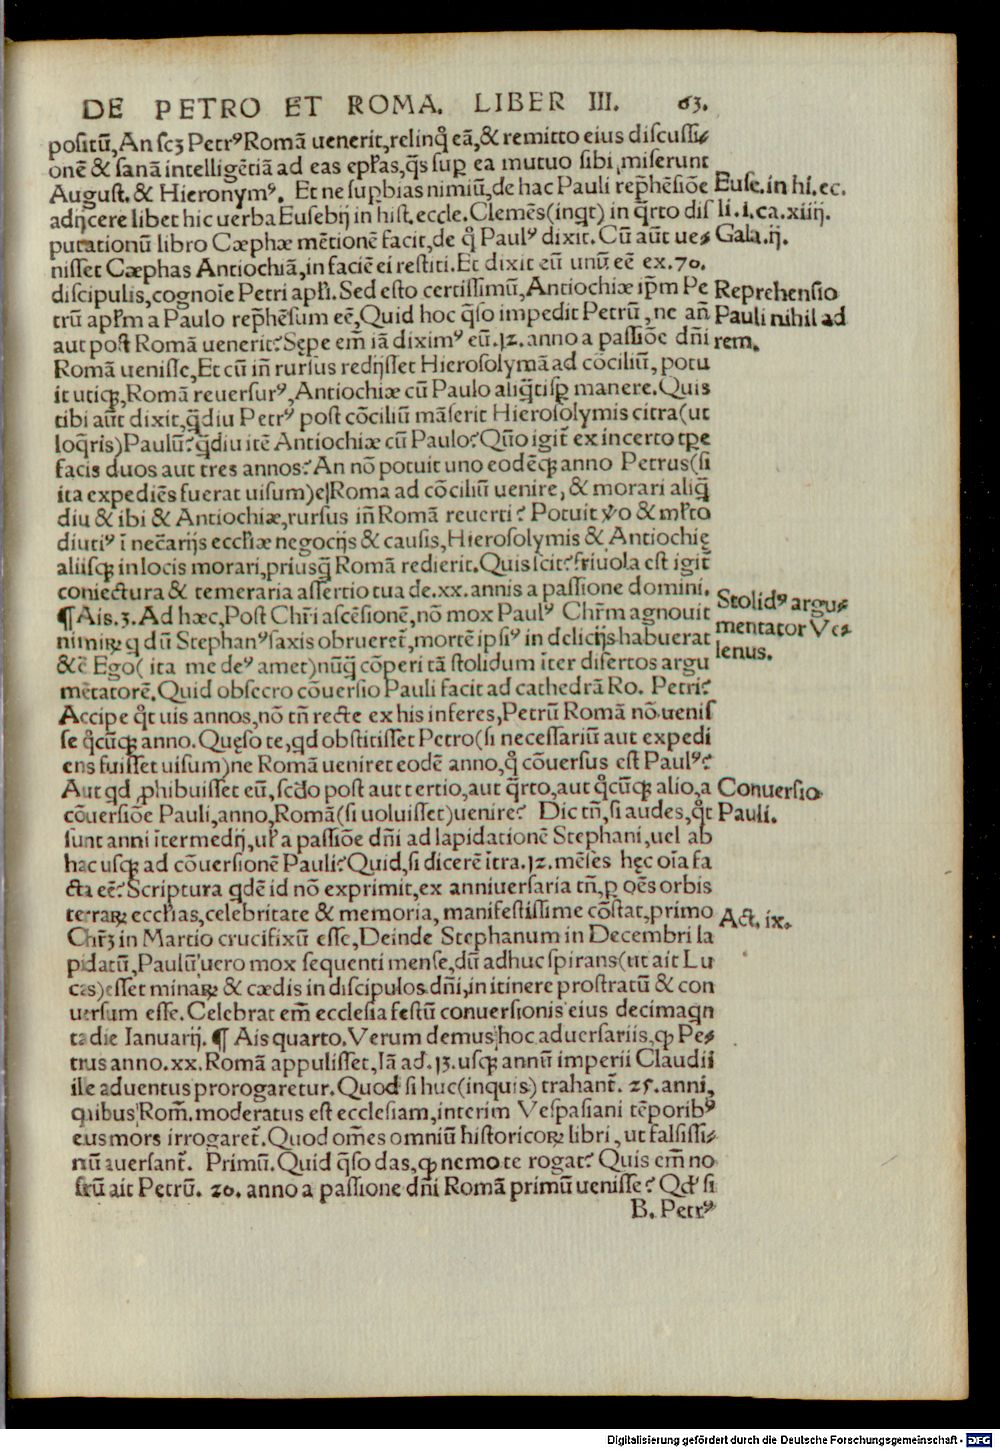 DE PETRO ET ROMA. LIBER III. 63.
positū, An scꝫ Petrꝰ Romā uenerit, relinq̊ eā, & remitto eius discussi⸗
onē & sanā intelligētiā ad eas ep̄las, q̄s suꝑ ea mutuo sibi miserunt
August. & Hieronymꝰ. Et ne suꝑbias nimiū, de hac Pauli rep̄hēsiōe
adijcere libet hic uerba Eusebij in hist. eccle. Clemēs (inqt) in q̄rto dis
putationū libro Cæphæ mētionē facit, de q̊ Paulꝰ dixit. Cū aūt ue⸗
nisset Cæphas Antiochiā, in faciē ei restiti. Et dixit eū unū eē ex .70.
discipulis, cognoīe Petri apl̄i. Sed esto certissimū, Antiochiæ ip̄m Pe
trū apl̄m a Paulo rep̄hēsum eē, Quid hoc q̄so impedit Petrū, ne añ
aut post Romā uenerit? Sępe em̄ iā diximꝰ eū .12. anno a passiōe dn̄i
Romā uenisse, Et cū iñ rursus redijsset Hierosolymā ad cōciliū, potu
it utiqꝫ, Romā reuersurꝰ, Antiochiæ cū Paulo aliq̄tisꝑ manere. Quis
tibi aūt dixit, q̄diu Petrꝰ post cōciliū māserit Hierosolymis citra (ut
loq̄ris) Paulū? q̄diu itē Antiochiæ cū Paulo? Qūo igit̄ ex incerto tꝑe
facis duos aut tres annos? An nō potuit uno eodēqꝫ anno Petrus (si
ita expediēs fuerat uisum) e Roma ad cōciliū uenire, & morari aliq̄
diu & ibi & Antiochiæ, rursus iñ Romā reuerti? Potuit ỽo & ml̄to
diutiꝰ ī nec̄arijs eccl̄iæ negocijs & causis, Hierosolymis & Antiochię
aliisqꝫ in locis morari, priusq̄ Romā redierit. Quis scit? friuola est igit̄
coniectura & temeraria assertio tua de .xx. annis a passione domini.
¶ Ais .3. Ad hæc, Post Chr̄i ascēsionē, nō mox Paulꝰ Chr̄m agnouit
nimiꝝ q dū Stephanꝰ saxis obrueret̄, mortē ipsiꝰ in delicijs habuerat
&c̄ Ego (ita me deꝰ amet) nūq̄ cōperi tā stolidum īter disertos argu
mētatorē. Quid obsecro cōuersio Pauli facit ad cathedrā Ro. Petri?
Accipe q̊t uis annos, nō tñ recte ex his inferes, Petrū Romā nō uenis
se q̊cūqꝫ anno. Quęso te, qd obstitisset Petro (si necessariū aut expedi
ens fuisset uisum) ne Romā ueniret eodē anno, q̊ cōuersus est Paulꝰ?
Aut qd ꝓhibuisset eū, scd̄o post aut tertio, aut q̄rto, aut q̊cūqꝫ alio, a
cōuersiōe Pauli, anno, Romā (si uoluisset) uenire? Dic tñ, si audes, q̊t
sunt anni ītermedij, ul̄ a passiōe dn̄i ad lapidationē Stephani, uel ab
hac usqꝫ ad cōuersionē Pauli? Quid, si dicerē ītra .12. mēses hęc oīa fa
cta eē? Scriptura qdē id nō exprimit, ex anniuersaria tñ, ꝑ oēs orbis
terraꝝ eccl̄ias, celebritate & memoria, manifestissime cōstat, primo
Chr̄ꝫ in Martio crucifixū esse, Deinde Stephanum in Decembri la
pidatū, Paulū uero mox sequenti mense, dū adhuc spirans (ut ait Lu
cas) esset minaꝝ & cædis in discipulos dn̄i, in itinere prostratū & con
uersum esse. Celebrat em̄ ecclesia festū conuersionis eius decimaqn
ta die Ianuarij. ¶ Ais quarto. Verum demus hoc aduersariis, ꝙ Pe⸗
trus anno .xx. Romā appulisset, Iā ad .13. usqꝫ annū imperii Claudii
ille aduentus prorogaretur. Quod si huc (inquis) trahant̄ .25. anni,
quibus Rom̄. moderatus est ecclesiam, interim Vespasiani tēporibꝰ
eius mors irrogaret̄. Quod om̄es omniū historicoꝝ libri, ut falsissi⸗
mū auersant̄. Primū. Quid q̄so das, ꝙ nemo te rogat? Quis em̄ no
strū ait Petrū .20. anno a passione dn̄i Romā primū uenisse? Qd̄ si
B. Petrꝰ
Euse. in hi. ec.
li. i. ca. xiiij.
Gala. ij.
Reprehensio
Pauli nihil ad
rem.
Stolidꝰ argu⸗
mentator Ve⸗
lenus.
Conuersio
Pauli.
Act. ix.
Digitalisierung gefördert durch die Deutsche Forschungsgemeinschaft - DFG